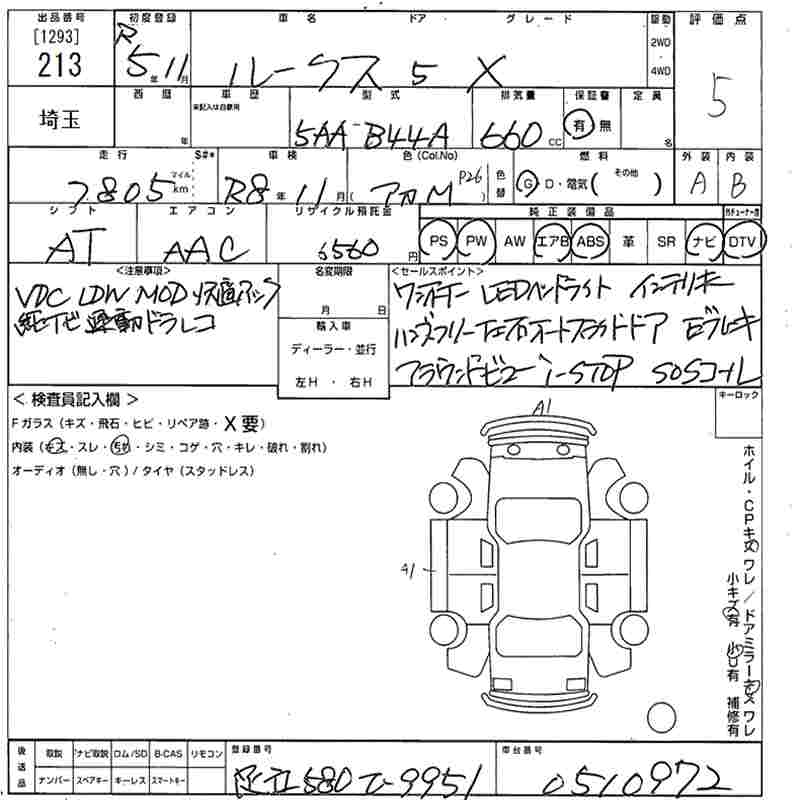 出品番号 初度登録 車名 ドア グレード 駆動 評価点
[1293] R 2WD
213 5年11月 ルークス 5 X 4WD 5
西暦 車歴 型式 排気量 保証書 定員
埼玉 年 未記入は自家用 5AA-B44A 660cc 有 無 名
走行 S#* 車検 色(Col.No) 燃料 外装 内装
7805 マイル km R8年11月 (アカM P26) 色替 G・D・電気( その他 ) A B
シフト エアコン リサイクル預託金 純正装備品
AT AAC 6560円 PS PW AW エアB ABS 革 SR ナビ DTV
<注意事項> 名変期限 <セールスポイント>
VDC LDW MOD 月 日 ワンオーナー LEDヘッドライト インテリキー
純ナビ 連動ドラレコ 輸入車 ハンズフリー 左右オートスライドドア
ディーラー・並行
左H・右H アラウンドビュー i-STOP SOSコール
<検査員記入欄> キーロック
Fガラス(キズ・飛石・ヒビ・リペア跡・X要)
内装(キズ・スレ・汚れ・シミ・コゲ・穴・キレ・破れ・割れ)
オーディオ(無し・穴)/タイヤ(スタッドレス)
A1
A1
ホイル・CPキズ ワレ/ドアミラーキズ ワレ
小キズ有 小凹有 補修有
後送品 取説 ナビ取説 ロム/SD B-CAS リモコン 登録番号 車台番号
ナンバー スペアキー キーレス スマートキー 足立580 て 9951 0510972